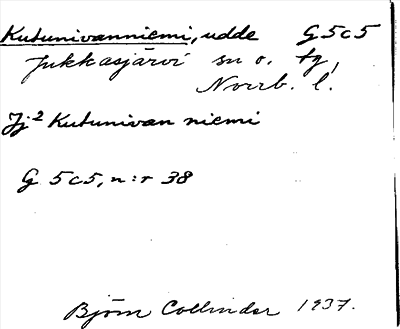 Kutunivanniemi, udde G 5c5
Jukkasjärvi sn o. tg,
Norrb. l.
Jj² Kutunivan niemi
G 5c5, n:r 38
Björn Collinder 1937.